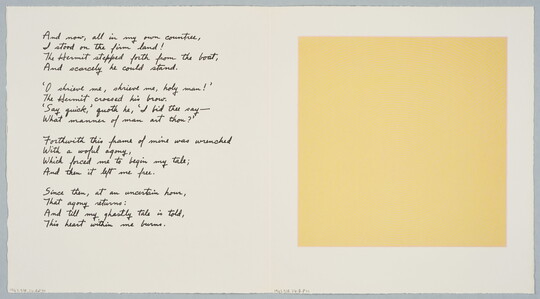 And now, all in my own countree,
I stood on the firm land!
The Hermit stepped forth from the boat,
And scarcely he could stand.
'O shrieve me, shrieve me, holy man!'
The Hermit crossed his brow.
'Say quick,' quoth he, 'I bid thee say—
What manner of man art thou?'
Forthwith this frame of mine was wrenched
With a woful agony,
Which forced me to begin my tale;
And then it left me free.
Since then, at an uncertain hour,
That agony returns:
And till my ghastly tale is told,
This heart within me burns.